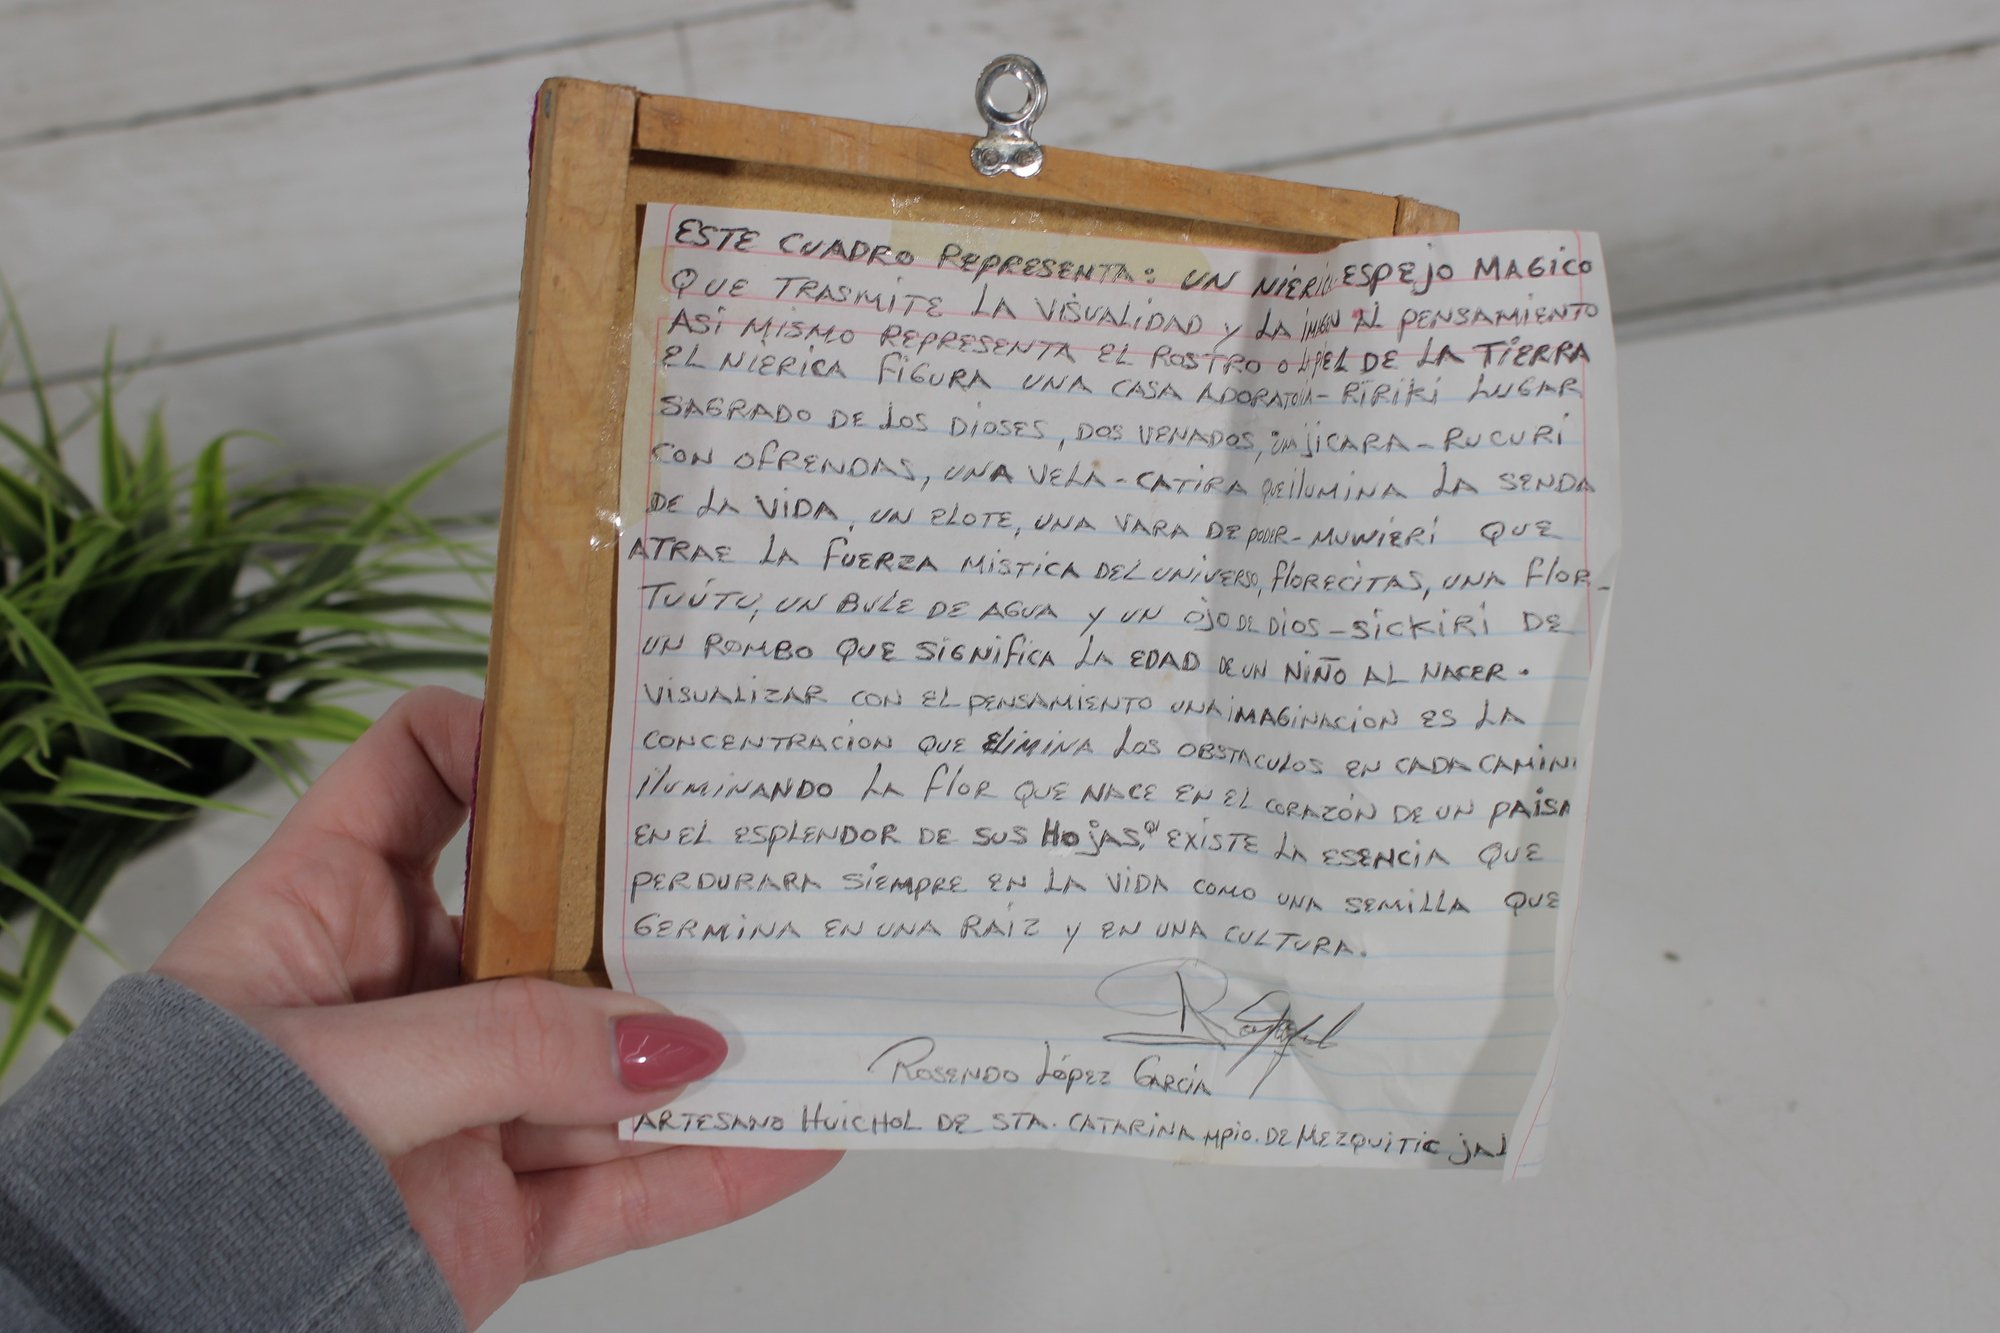 ESTE CUADRO REPRESENTA: UN NIERICA ESPEJO MAGICO
QUE TRASMITE LA VISUALIDAD Y LA IMAGEN AL PENSAMIENTO
ASI MISMO REPRESENTA EL ROSTRO O LA PIEL DE LA TIERRA
EL NIERICA FIGURA UNA CASA ADORATORIA-RIRIKI LUGAR
SAGRADO DE LOS DIOSES, DOS VENADOS, UNA JICARA-RUCURI
CON OFRENDAS, UNA VELA-CATIRA QUE ILUMINA LA SENDA
DE LA VIDA, UN ELOTE, UNA VARA DE PODER-MUWIERI QUE
ATRAE LA FUERZA MISTICA DEL UNIVERSO, FLORECITAS, UNA FLOR-
TUÚTU, UN BULE DE AGUA Y UN OJO DE DIOS-SICKIRI DE
UN ROMBO QUE SIGNIFICA LA EDAD DE UN NIÑO AL NACER.
VISUALIZAR CON EL PENSAMIENTO UNA IMAGINACION ES LA
CONCENTRACION QUE ELIMINA LOS OBSTACULOS EN CADA CAMIN
ILUMINANDO LA FLOR QUE NACE EN EL CORAZÓN DE UN PAISA
EN EL ESPLENDOR DE SUS HOJAS, EXISTE LA ESENCIA QUE
PERDURARA SIEMPRE EN LA VIDA COMO UNA SEMILLA QUE
GERMINA EN UNA RAIZ Y EN UNA CULTURA.
ROSENDO LÓPEZ GARCÍA
ARTESANO HUICHOL DE STA. CATARINA MPIO. DE MEZQUITIC JAL